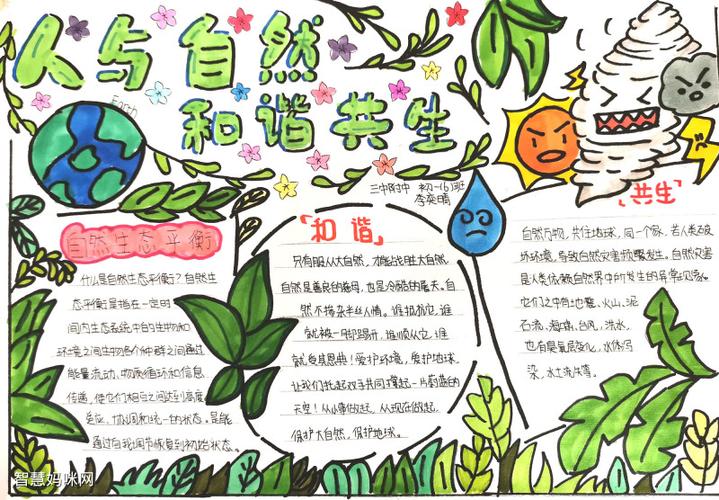 人与自然
和谐共生
Earth
三中附中 初一(6)班
李奕晴
自然生态平衡
什么是自然生态平衡?自然生
态平衡是指在一定时
间内生态系统中的生物和
环境之间生物各个种群之间通过
能量流动、物质循环和信息
传递,使它们相互之间达到高度
适应、协调和统一的状态。是能
通过自我调节恢复到初始状态。
「和谐」
只有服从大自然,才能战胜大自然。
自然是善良的慈母,也是冷酷的屠夫。自
然不掺杂半丝人情。谁抗拒它,谁
就被一脚踢开,谁顺从它,谁
就受其恩典!爱护环境,爱护地球。
让我们托起双手共同撑起一片蔚蓝的
天空!从小事做起,从现在做起,
保护大自然,保护地球。
「共生」
自然万物,共住地球,同一个家,若人类破
坏环境,导致自然灾害频繁发生。自然灾害
是人类依赖自然界中所发生的异常现象。
它们之中有地震、火山、泥
石流、海啸、台风、洪水,
也有臭氧层变化、水体污
染、水土流失等。
智慧妈咪网